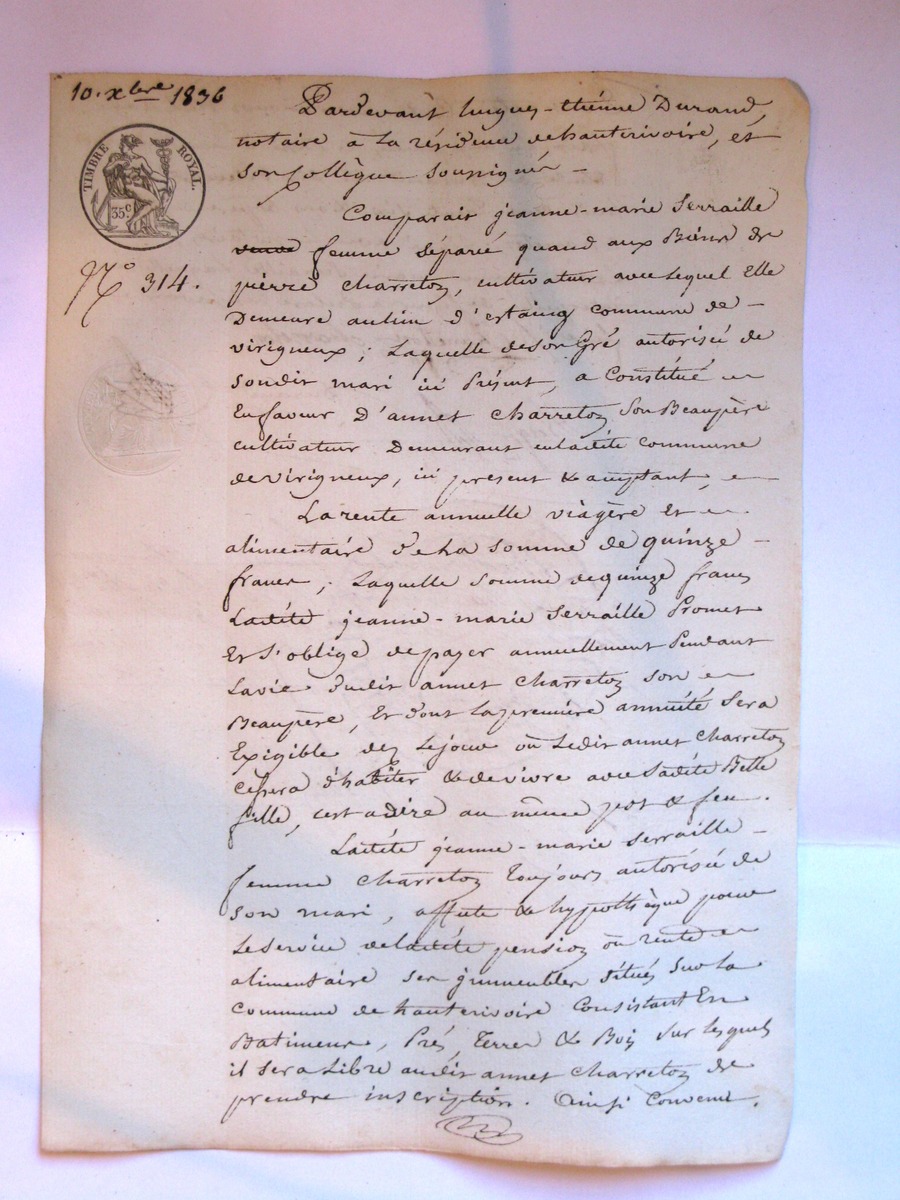 10. Xbre 1836
TIMBRE ROYAL.
35c
N° 314.
Pardevant hugues-étiénne Durand,
notaire à La résidence de hauterivoire, et
son Collègue soussignés
Comparait jeanne-marie Serraille
veuve femme séparée quand aux Biens de
pierre Charretoz, cultivateur avec Lequel Elle
Demeure au lieu d'estaing commune de
virigneux ; Laquelle de son Gré autorisée de
son dit mari ici Présent, a Constitué
En faveur D'annet Charretoz Son Beaupère
cultivateur Demeurant en la dite commune
de virigneux, ici présent & acceptant,
La rente annuelle viagère et
alimentaire de La somme de quinze
francs ; Laquelle somme de quinze francs
Ladite jeanne-marie Serraille Promet
Et S'oblige de payer annuellement Pendant
La vie dudit annet Charretoz son
Beaupère, Et dont La première annuité Sera
Exigible dez Le jour où Ledit annet Charretoz
Cessera d'habiter & de vivre avec Sadite Belle
fille, c'est a dire au même pot & feu.
Ladite jeanne-marie Serraille
femme Charretoz Toujours autorisée de
son mari, affecte & hypothèque pour
Le service de ladite pension ou rente
alimentaire ses jmmeubles situés Sur La
Commune de hauterivoire Consistant En
Batiments, Prés, Terres & Bois sur lesquels
il sera Libre audit annet Charretoz de
prendre inscription. Ainsi Convenu.